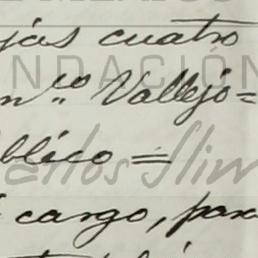 jas cuatro
FUNDACIÓN
Vallejo=
blico=
Carlos Slim
cargo, para